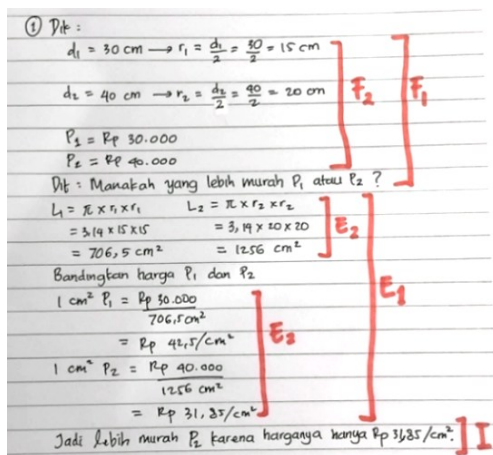 ① Dik :
d₁ = 30 cm → r₁ = d₁/2 = 30/2 = 15 cm
d₂ = 40 cm → r₂ = d₂/2 = 40/2 = 20 cm
F₂
F₁
P₁ = Rp 30.000
P₂ = Rp 40.000
Dit : Manakah yang lebih murah P₁ atau P₂ ?
L₁ = π x r₁ x r₁ L₂ = π x r₂ x r₂
= 3,14 x 15 x 15 = 3,14 x 20 x 20
E₂
= 706,5 cm² = 1256 cm²
Bandingkan harga P₁ dan P₂
E₁
1 cm² P₁ = Rp 30.000
706,5 cm²
= Rp 42,5/cm²
E₃
1 cm² P₂ = Rp 40.000
1256 cm²
= Rp 31,85/cm²
Jadi lebih murah P₂ karena harganya hanya Rp 31,85/cm².
I